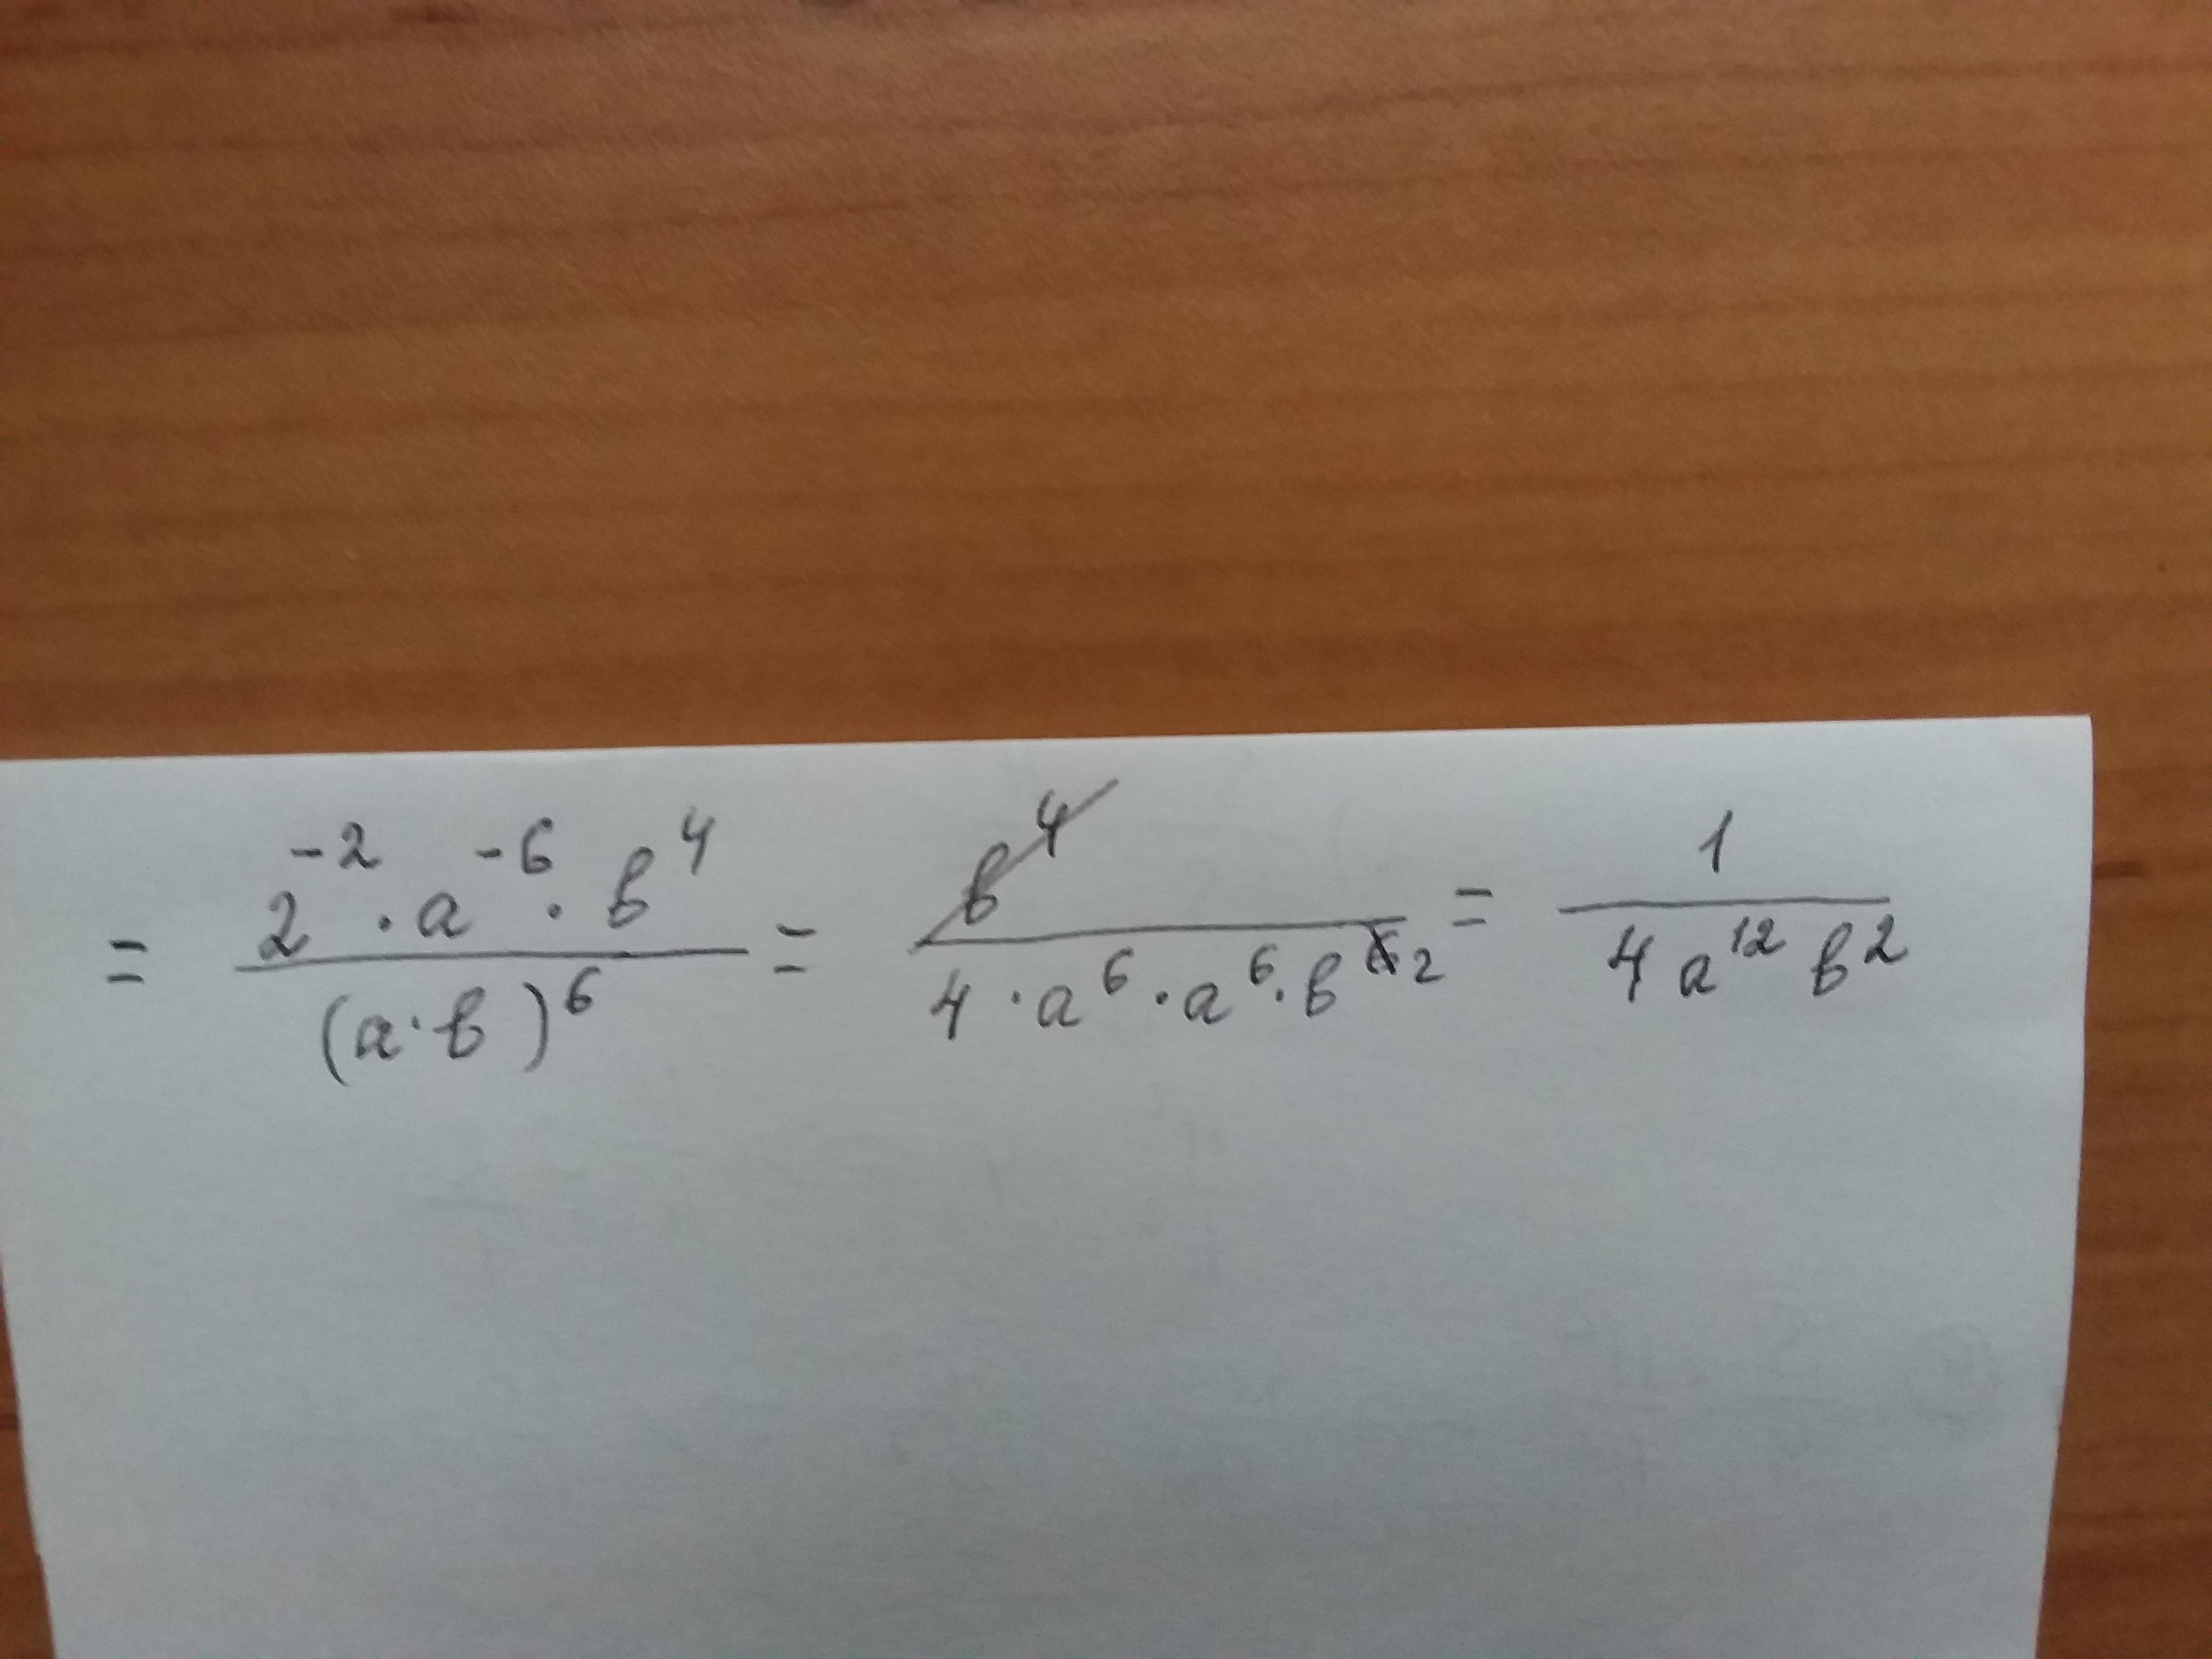 = (2^-2 · a^-6 · b^4) / (a · b)^6 = b^4 / (4 · a^6 · a^6 · b^6 2) = 1 / (4 a^12 b^2)